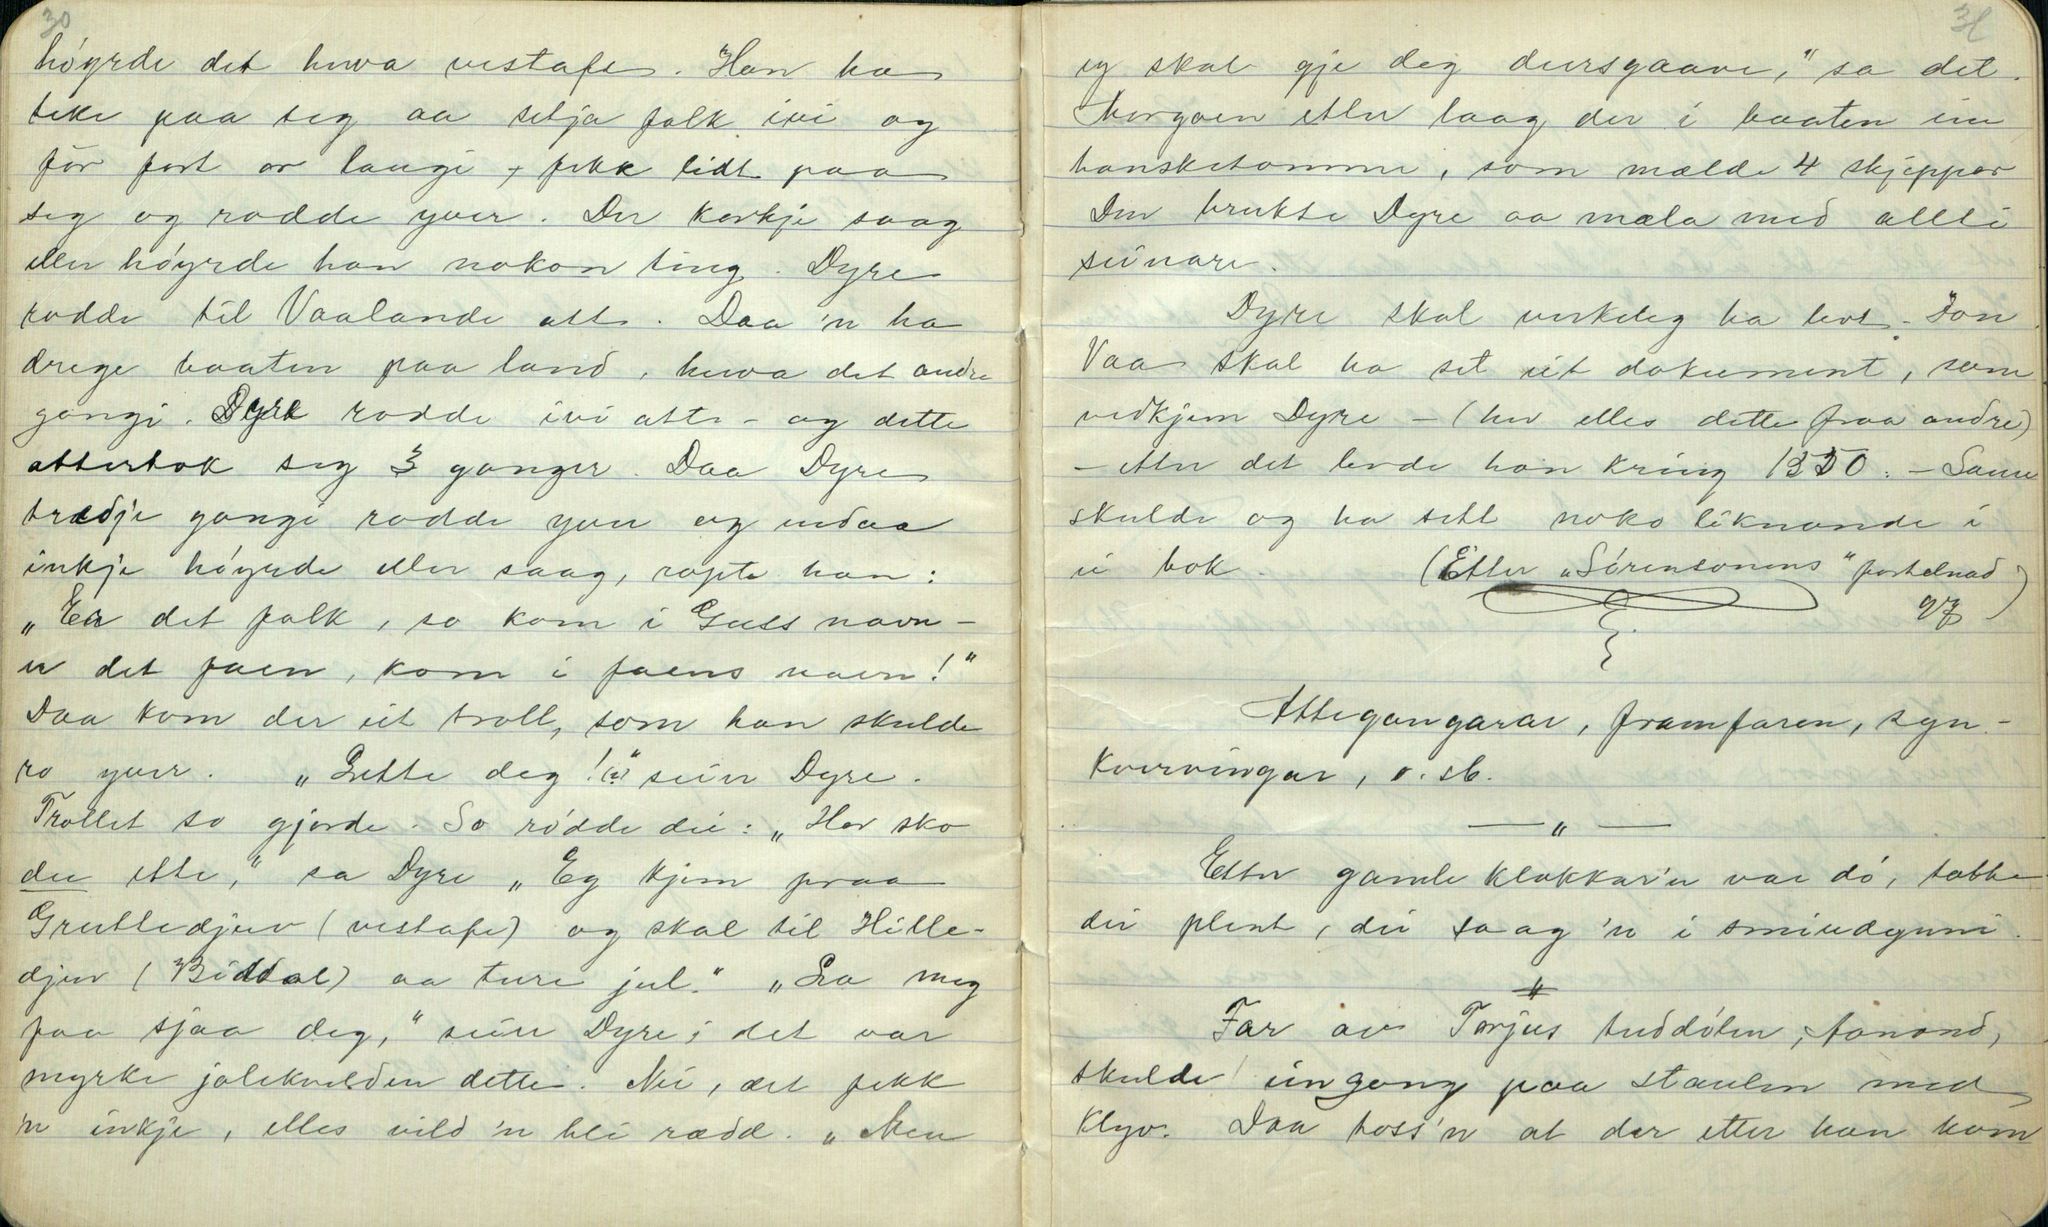 30
høyrde det huva vestafe. Han ha
teke paa seg aa setja folk ivi og
fór fort or laugi, fekk lidt paa
seg og rodde yver. Der korkje saag
eller høyrde han nokon ting. Dyre
rodde til Vaalande att. Daa 'n ha
drege baaten paa land, huva det andre
gongi. Dyre rodde ivi atte - og dette
atterbok seg 3 gonger. Daa Dyre
trædje gongi rodde yver og endaa
inkje høyrde eller saag, ropte han:
"Er det folk, so kom i Guss navn -
er det faen, kom i faens navn!"
Daa kom der eit troll, som han skulde
ro yver. "Lette deg!" seiir Dyre.
Trollet so gjorde. So rødde dei: "Hor sko
du ette," sa Dyre "Eg kjem fraa
Gruttedjuv (vestafe) og skal til Hille-
djuv (Bøddal) aa ture jul." "La meg
faa sjaa deg," seiir Dyre; det var
myrke jolekvelden dette. Nei, det fekk
'n inkje, elles vild 'n bli rædd. "Men
31
eg skal gje deg duesgaave," sa det.
Morgoen etter laag der i baaten ein
hansketomme, som mælde 4 skjeppor
Den brukte Dyre aa mæla med allti
seinare.
Dyre skal verkeleg ha levt. Jon
Vaa skal ha set eit dokument, som
vedkjem Dyre - (hev elles dette fraa andre)
- etter det levde han kring 1350. - Same
skulde og ha sett noko liknande i
ei bok. (Etter "Sørensonens" fortelnad
97)
Attegangarar, framfaren, syn-
kvervingar, o. sl.
— " —
Etter gamle klokkar'n var dó, tokke
dei plent, dei saag 'n i smiudynni.
"
Far av Torjus tuddølen, Aanond,
skulde eingong paa staulen med
klyv. Daa toss'n at der etter han kom